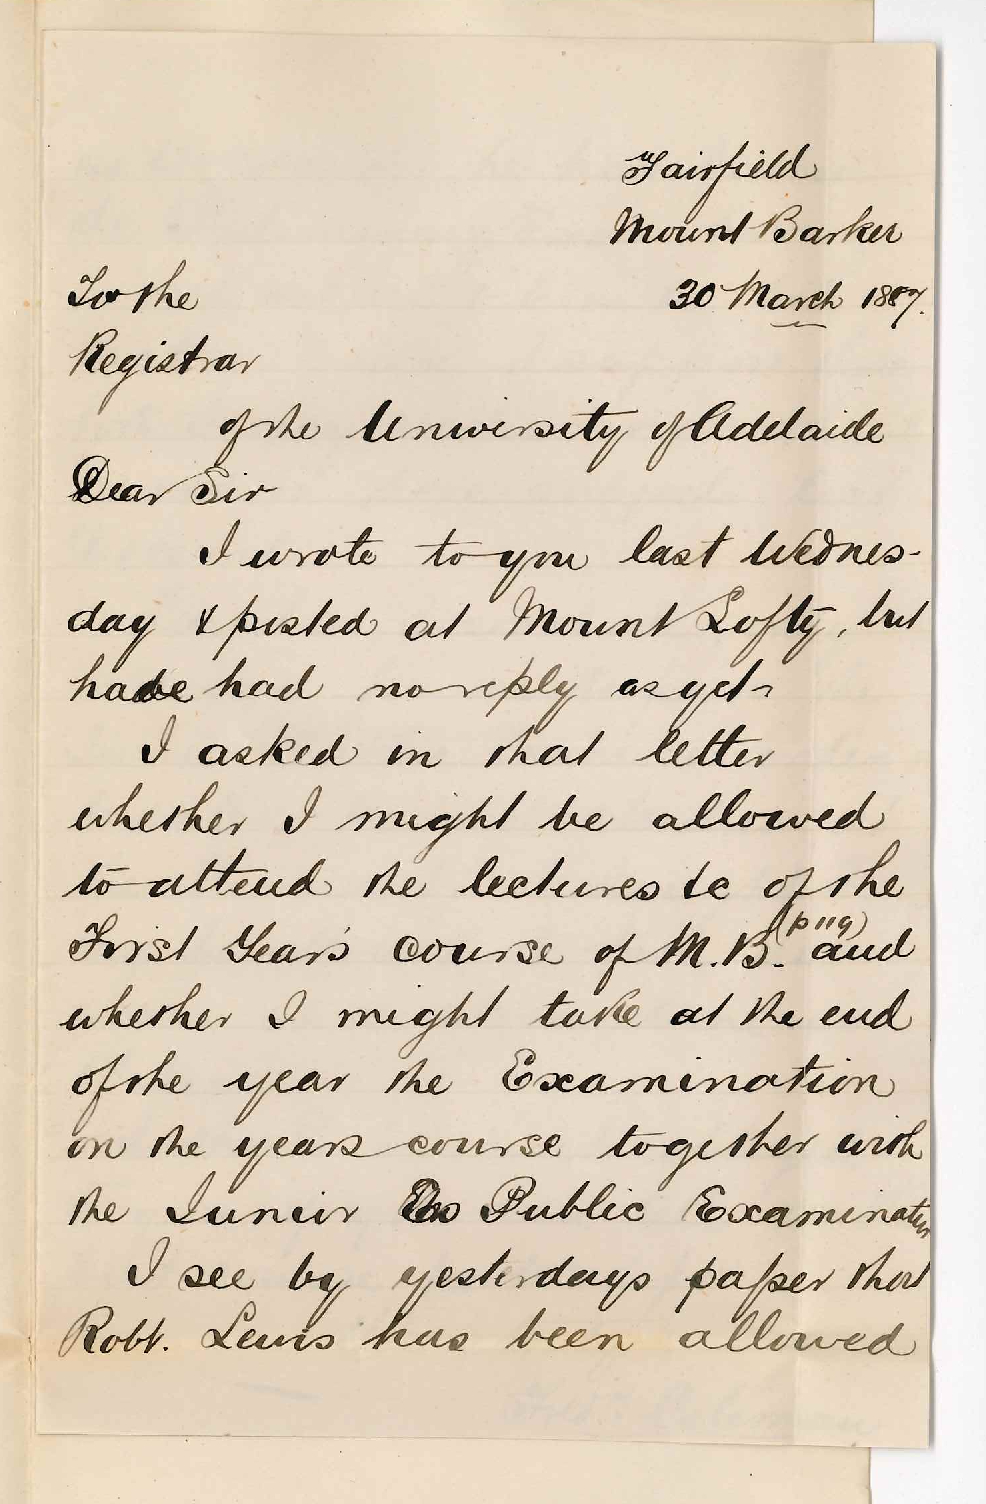 Fairfield
Mount Barker
30 March 1887.
To the
Registrar
of the University of Adelaide
Dear Sir
I wrote to you last Wednes-
day & posted at Mount Lofty, but
have had no reply as yet
I asked in that letter
whether I might be allowed
to attend the lectures &c of the
First Year's course of M.B. (p 119) and
whether I might take at the end
of the year the Examination
on the years course together with
the Junior Public Examination
I see by yesterdays paper that
Robt. Lewis has been allowed